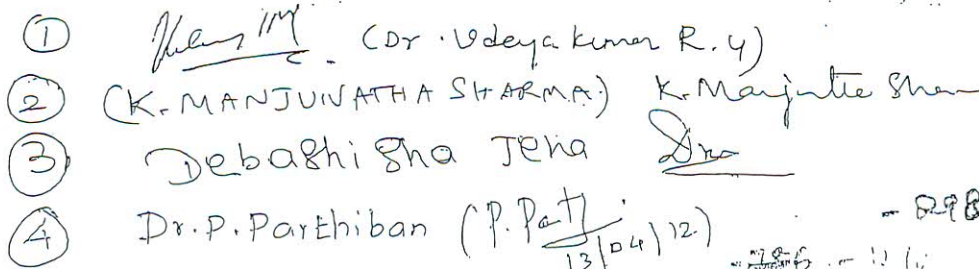 ① (Dr. Udeya kumar R. Y)
② (K. MANJUNATHA SHARMA) K. Manjutte Shar
③ Debashisha Jena
④ Dr. P. Parthiban (P. Part
13/04/12.)